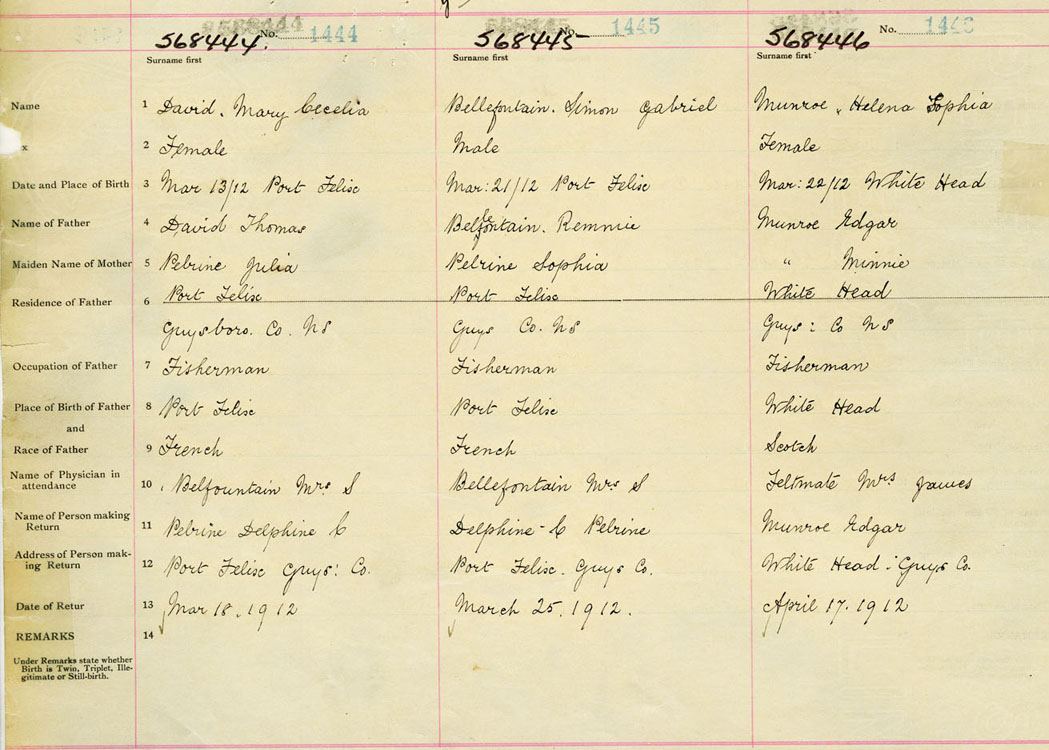 568444 No. 1444 568445 No. 1445 568446 No.
Surname first Surname first Surname first
Name 1 David. Mary Cecelia Bellefontain. Simon Gabriel Munroe, Helena Sophia
x 2 Female Male Female
Date and Place of Birth 3 Mar 13/12 Port Felix Mar: 21/12 Port Felix Mar: 22/12 White Head
Name of Father 4 David Thomas Belfontain. Remnie Munroe Edgar
le
Maiden Name of Mother 5 Pelrine Julia Pelrine Sophia " Minnie
Residence of Father 6 Port Felix Port Felix White Head
Guysboro. Co. NS Guys Co. NS Guys: Co NS
Occupation of Father 7 Fisherman Fisherman Fisherman
Place of Birth of Father 8 Port Felix Port Felix White Head
and
Race of Father 9 French French Scotch
Name of Physician in
attendance 10 Belfountain Mrs S Bellefontain Mrs S Feltmate Mrs James
Name of Person making
Return 11 Pelrine Delphine C Delphine - C Pelrine Munroe Edgar
Address of Person mak-
ing Return 12 Port Felix Guys: Co. Port Felix. Guys Co. White Head - Guys Co.
Date of Retur 13 Mar 18. 1912 March 25. 1912. April 17. 1912
REMARKS 14
Under Remarks state whether
Birth is Twin, Triplet, Ille-
gitimate or Still-birth.